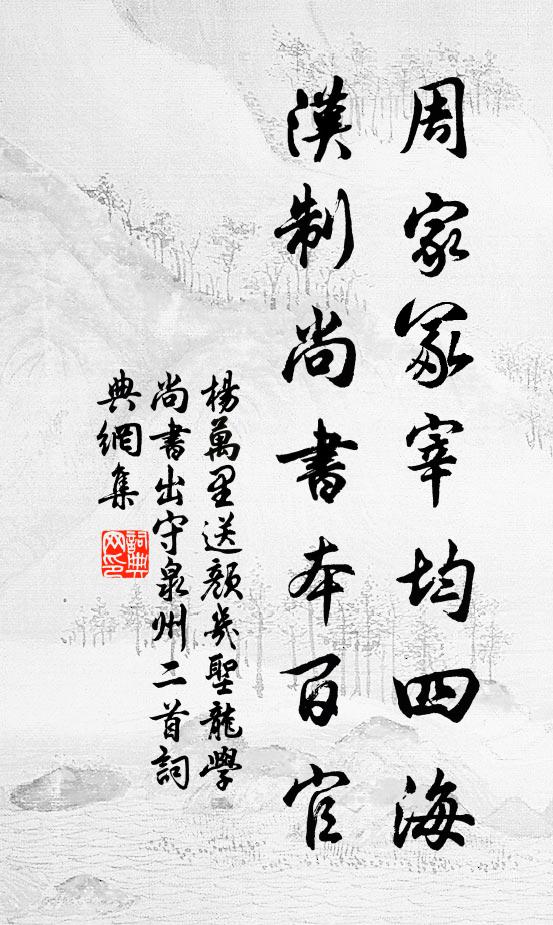 周家冢宰均四海
漢制尚書本百官
楊萬里送顏幾聖龍學
尚書出守泉州二首詞
典網集
詞典
网印